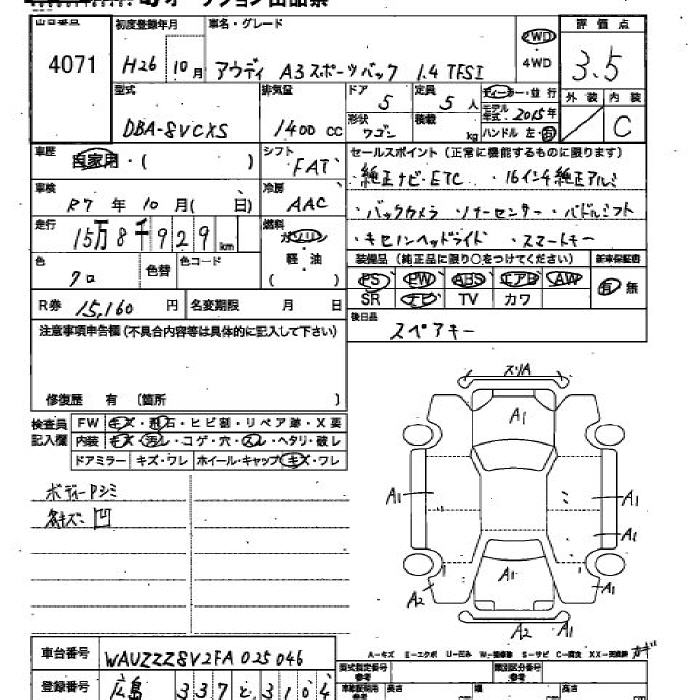 4071
初度登録年月
車名・グレード
H26 10月
アウディ A3スポーツバック 1.4 TFSI
2WD
・4WD
評価点
3.5
外装 内装
C
型式
DBA-8VCXS
排気量
1400 cc
ドア
5
定員
5 人
形状
ワゴン
積載
kg
ディーラー・並行
モデル年式 2015年
ハンドル 左・右
車歴
自家用・( )
シフト
FAT
車検
R7 年 10 月( 日)
冷房
AAC
走行
15万8千929 km
燃料
ガソリン
軽・油
( )
色
クロ
色替
色コード
R券 15,160 円
名変期限 月 日
セールスポイント(正常に機能するものに限ります)
・純正ナビ・ETC ・16インチ純正アルミ
・バックカメラ ・ソナーセンサー ・パドルシフト
・キセノンヘッドライト ・スマートキー
装備品(純正品に限り○をつけてください)
新車保証書
PS PW ABS エアB AW
SR ナビ TV カワ
有・無
後日品
スペアキー
注意事項申告欄(不具合内容等は具体的に記入して下さい)
修復歴 有 〔箇所 〕
検査員記入欄
FW キズ・飛石・ヒビ割・リペア跡・X要
内装 キズ・汚レ・コゲ・穴・スレ・ヘタリ・破レ
ドアミラー キズ・ワレ ホイール・キャップ キズ・ワレ
ボディーPシミ
各キズ・凹
スリA
A1
A1
A1
A1
A1
A1
A2
A2
A1
A－キズ E－エクボ U－凹み W－補修跡 S－サビ C－腐食 XX－交換跡
車台番号
WAUZZZ8V2FA025046
登録番号
広島 337 と 3104
型式指定番号
参考
類別区分番号
参考